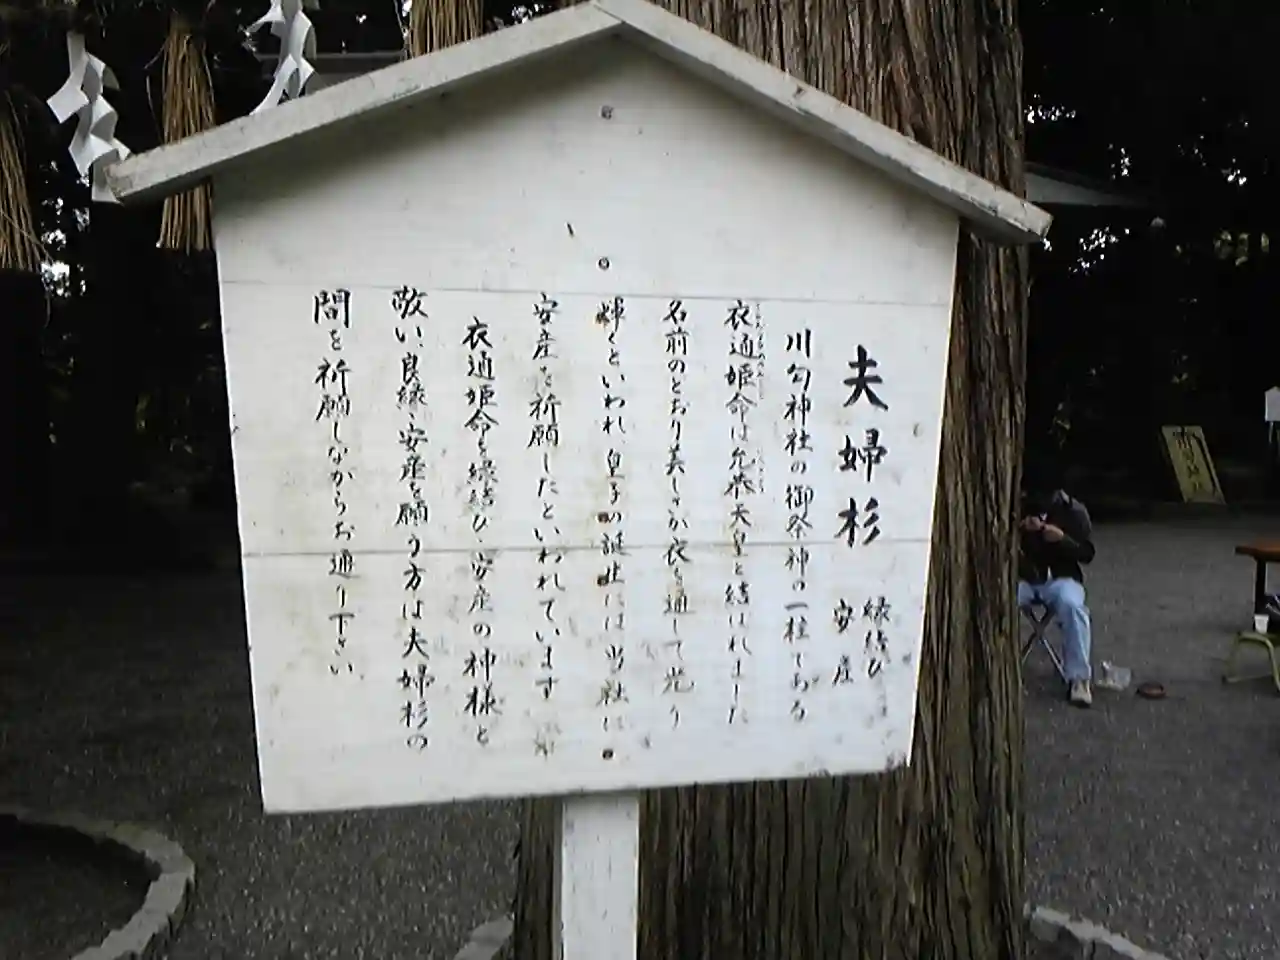 夫婦杉 縁結び
安産
川勾神社の御祭神の一柱である
衣通姫命は允恭天皇と結ばれました
名前のとおり美しさが衣を通して光り
輝くといわれ、皇子の誕生には当社に
安産を祈願したといわれています
衣通姫命を縁結び、安産の神様と
敬い、良縁、安産を願う方は夫婦杉の
間を祈願しながらお通り下さい